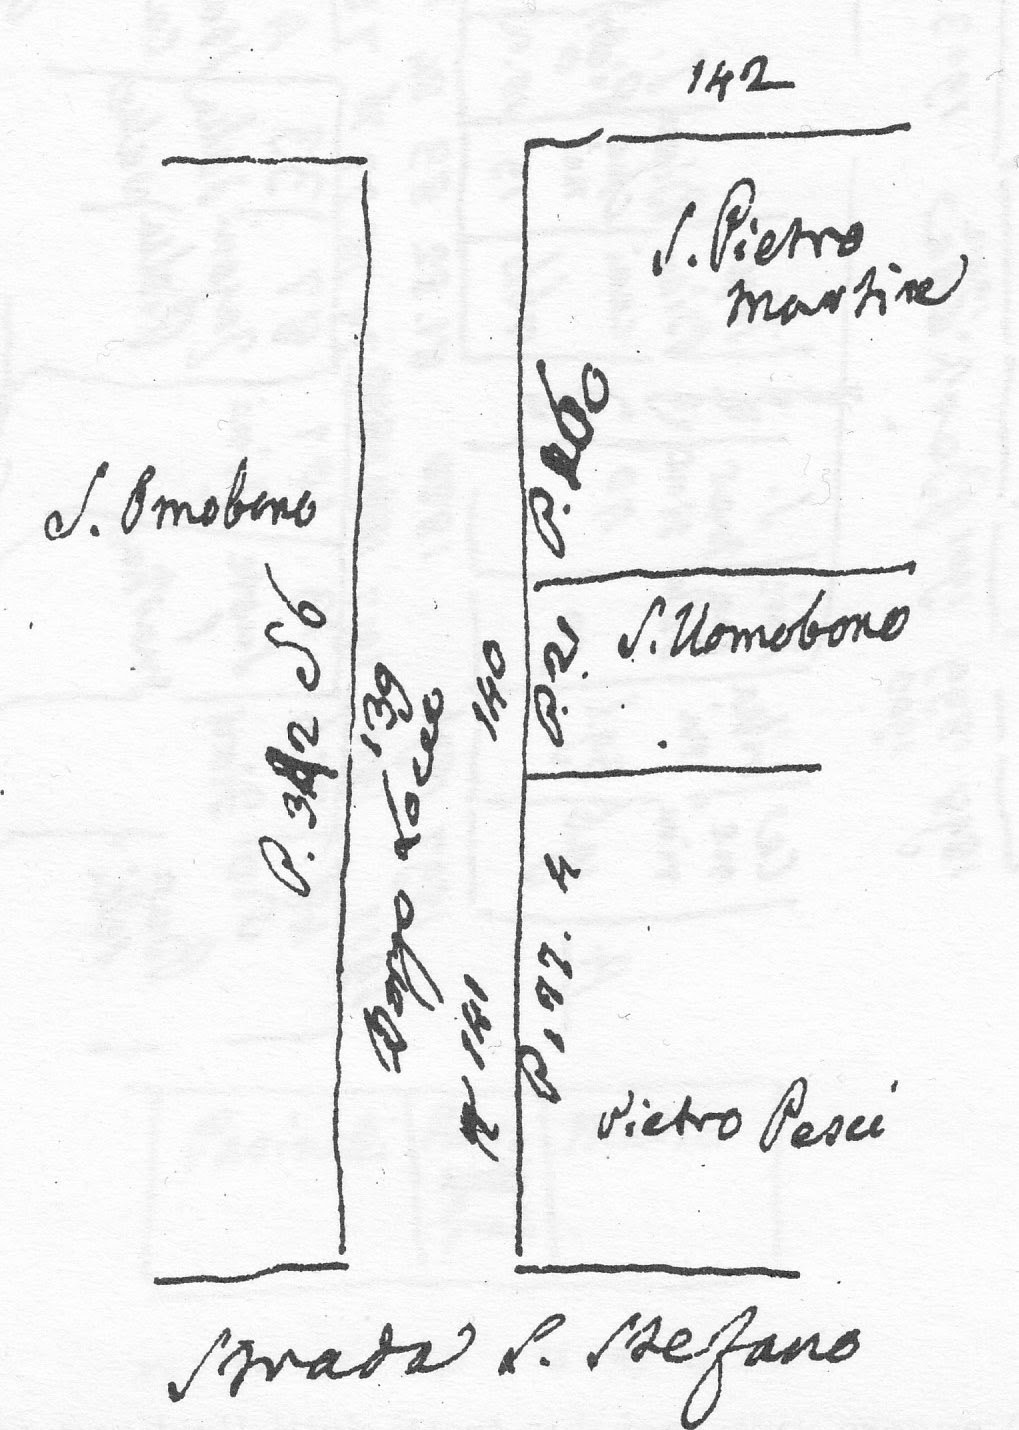 142
S. Pietro
Martire
S. Omobono
P. 260
S. Uomobono
P. 2.
140
139
P. 342 56
Borgo Locco
P. 77. 4
141
Pietro Pesci
Strada S. Stefano